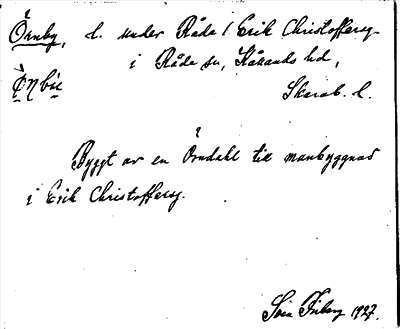 Örnby, l. under Råda / Erik Christoffersg.
i Råda sn, Kåkands hd,
Skarab. l.
Byggt av en Örndahl till manbyggnad
i Erik Christoffersg.
1927.